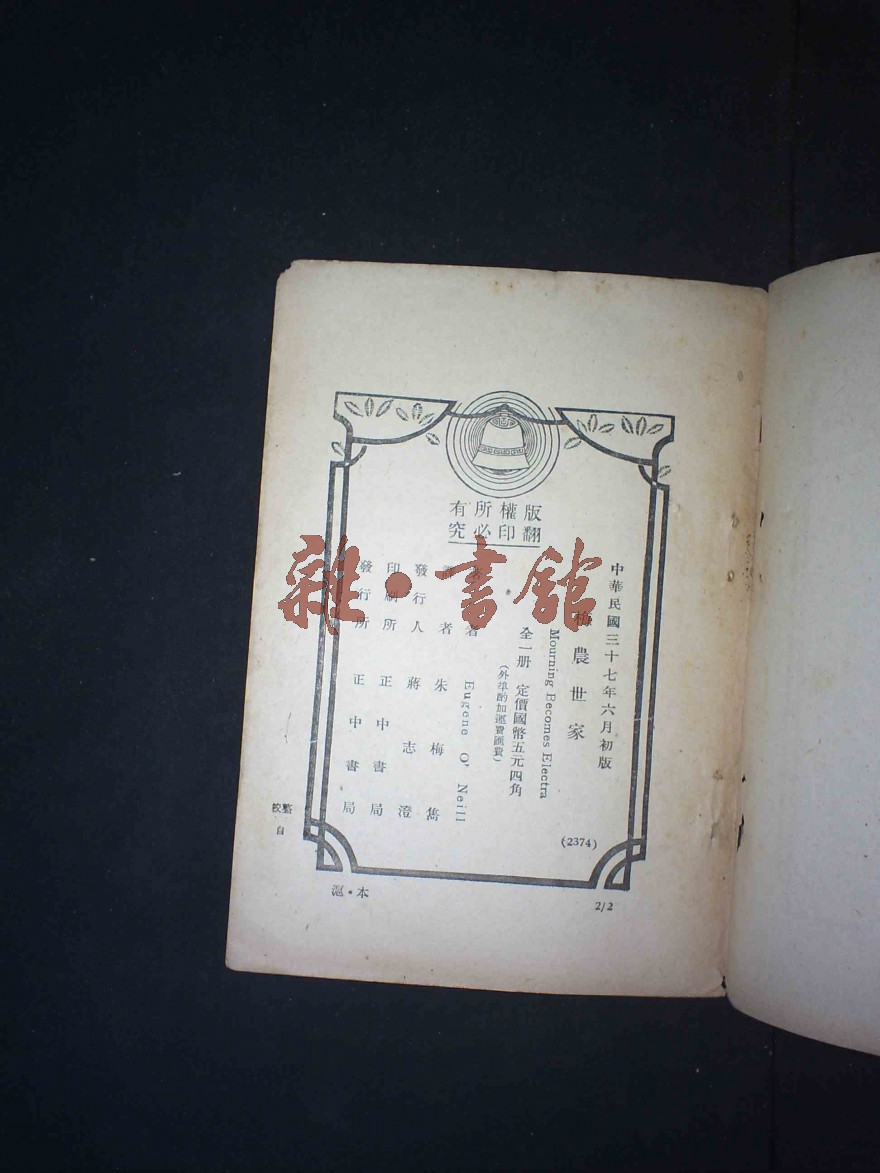 版權所有
翻印必究
中華民國三十七年六月初版
梅農世家
Mourning Becomes Electra
全一册 定價國幣五元四角
(外埠酌加運費匯費)
著者 Eugene O' Neill
譯者 朱梅雋
發行人 蔣志澄
印刷所 正中書局
發行所 正中書局
(2374)
校
自
滬・本
2/2
雜・書館